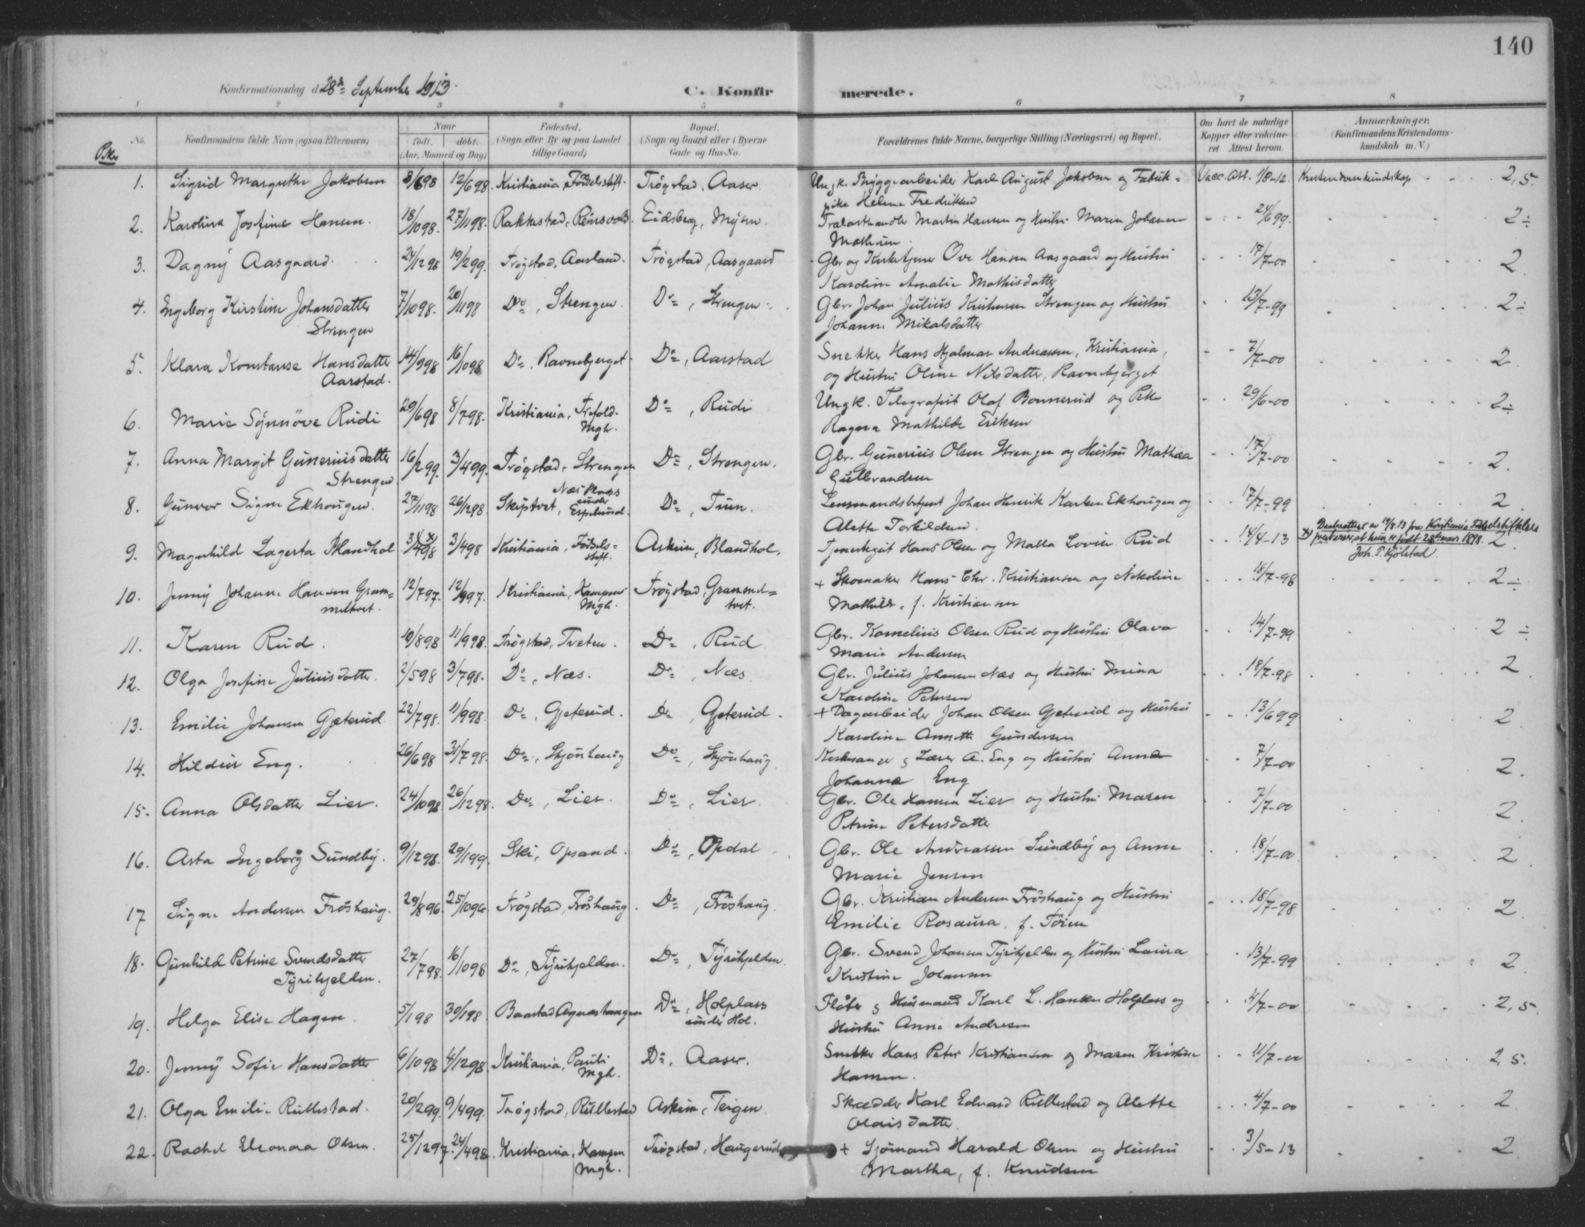 140
Konfirmationsdag d. 28de September 1913.
C. Konfirmerede.
1 2 3 4 5 6 7 8
No.
Konfirmandens fulde Navn (ogsaa Efternavn)
Naar
født. døbt.
(Aar, Maaned og Dag)
Fødested.
(Sogn eller By og paa Landet tillige Gaard)
Bopæl.
(Sogn og Gaard eller i Byerne Gade og Hus-No.
Forældrenes fulde Navne, borgerlige Stilling (Næringsvei) og Bopæl.
Om havt de naturlige Kopper eller vakcineret. Attest herom.
Anmærkninger.
(Konfirmandens Kristendomskundskab m. V.)
Piker
1. Sigrid Margrethe Jakobsen 12/698 Kristiania, Fødselsstift. Trøgstad, Aaser Ungk. Bryggearbeider Karl August Jakobsen og Fabrikpike Helene Fredriksen Vacc. Att. Kristendomskundskap 2,5.
2. Karoline Josefine Hansen. 18/1098. 27/1198. Rakkestad, Eidsberg, Mysen. Martin Hansen og Hustru Maren Johanne Mathisen 24/699. 2÷
3. Dagny Aasgaard. 24/1298 19/299. Trøgstad, Aasland. Trøgstad, Aasgaard Gbr og Kirketjener Ove Hansen Aasgaard og Hustru Karoline Amalie Mathisdatter 17/7-00 2
4. Ingeborg Kirstine Johansdatter Strengen 7/1098. 20/1198 Do, Strengen. Do, Strengen. Gbr. Johan Julius Kristensen Strengen og Hustru Johanne Mikalsdatter 19/7-99 2÷
5. Klara Konstanse Hansdatter Aarstad. 14/998 16/1098 Do, Ravnebjerget Do, Aarstad Snekker Hans Hjalmar Andreassen, Kristiania, og Hustru Oline Nilsdatter, Ravnebjerget 7/7-00 2.
6. Marie Synnøve Rudi 29/698 8/798. Kristiania, Trefold. Mgh. Do, Rudi Ungk. Telegrafist Olaf Bonnerud og Pike Ragna Mathilde Eriksen 29/6-00 2÷
7. Anna Margit Guneriusdatter Strengen 16/299. 3/499. Trøgstad, Strengen Do, Strengen. Gbr. Gunerius Olsen Strengen og Hustru Mathea Gulbrandsen 17/7-00 2.
8. Gunvor Signe Ekhougen. 27/1198 26/1298. Skiptvet, Næs Plads under Espelund. Do, Tuen. Lensmandsbetjent Johan Henrik Karlsen Ekhougen og Alette Torkildsen. 17/7-99 2
9. Magnhild Lagerta Blandhol 3/498 Kristiania, Fødselsstift. Askim, Blandhol. Tjenestegut Hans Olsen og Malla Lovise Rud 14/4-13 fra Kristiania Fødselsstiftelse at hun er født 28de mars 1898. Joh. P. Kjølstad. 2.
10. Jenny Johanne Hansen Grammeltvet. 12/797. 12/997. Kristiania, Kampen Mgh. Trøgstad, Grammeltvet. + Skomaker Hans Chr. Kristiansen og Nikoline Mathilde, f. Kristiansen 18/7-98 2÷
11. Karen Rud. 10/898 11/998. Trøgstad, Tveten. Do, Rud Gbr. Kornelius Olsen Rud og Hustru Olava Marie Andersen 14/7-99 2÷
12. Olga Josefine Juliusdatter. 2/598 3/798. Do, Næs. Do, Næs Gbr. Julius Johansen Næs og Hustru Mina Karoline Petersen 18/7-98 2
13. Emilie Johansen Gjeterud. 22/798. 11/998. Do, Gjeterud. Do, Gjeterud. + Dagarbeider Johan Olsen Gjeterud og Hustru Karoline Annette Gundersen 13/699 2
14. Hildur Eng. 26/698 31/798. Do, Skjønhaug Do, Skjønhaug Kirkesanger & Lærer A. Eng og Hustru Anna Johanna Eng 7/7-00 2.
15. Anna Olsdatter Lier. 24/1098 26/1298. Do, Lier. Do, Lier. Gbr. Ole Hansen Lier og Hustru Maren Petrine Petersdatter 7/7-00 2.
16. Asta Ingeborg Sundby. 9/1298. 29/199. Ski, Opsand. Do, Opdal Gbr. Ole Andreassen Sundby og Anne Marie Jensen 18/7-00 2
17 Signe Andersen Frøshaug. 29/896. 25/1096. Trøgstad, Frøshaug. Do, Frøshaug. Gbr. Kristian Andersen Frøshaug og Hustru Emilie Rosaura, f. Tøien 18/7-98 2.
18. Gunhild Petrine Svendsdatter Tyrihjelden. 27/798. 16/1098 Do, Tyrihjelden. Do, Tyrihjelden. Gbr. Svend Johansen Tyrihjelden og Hustru Laura Kristine Johansen 13/7-99 2
19. Helga Elise Hagen 5/198 30/198. Baastad Do, Holplass under Hol. Fløter & Husmand Karl L. Hansen Holplass og Hustru Anne Andresen 4/7-00 2,5.
20. Jenny Sofie Hansdatter 6/1098 4/1298. Kristiania, Pauli Mgh. Do, Aaser. Snekker Hans Peter Kristiansen og Maren Kristine Hansen. 11/7-00 2,5.
21. Olga Emilie Rullestad. 20/299. 9/499. Trøgstad, Rullestad Askim, Teigen. Skredder Karl Edvard Rullestad og Alette Olausdatter. 4/7-00 2
22. Rachel Eleonora Olsen. 25/1297. 24/498. Kristiania, Kampen Mgh. Trøgstad, Haugerud + Sjømand Harald Olsen og Hustru Martha, f. Knudsen 3/5-13 2.